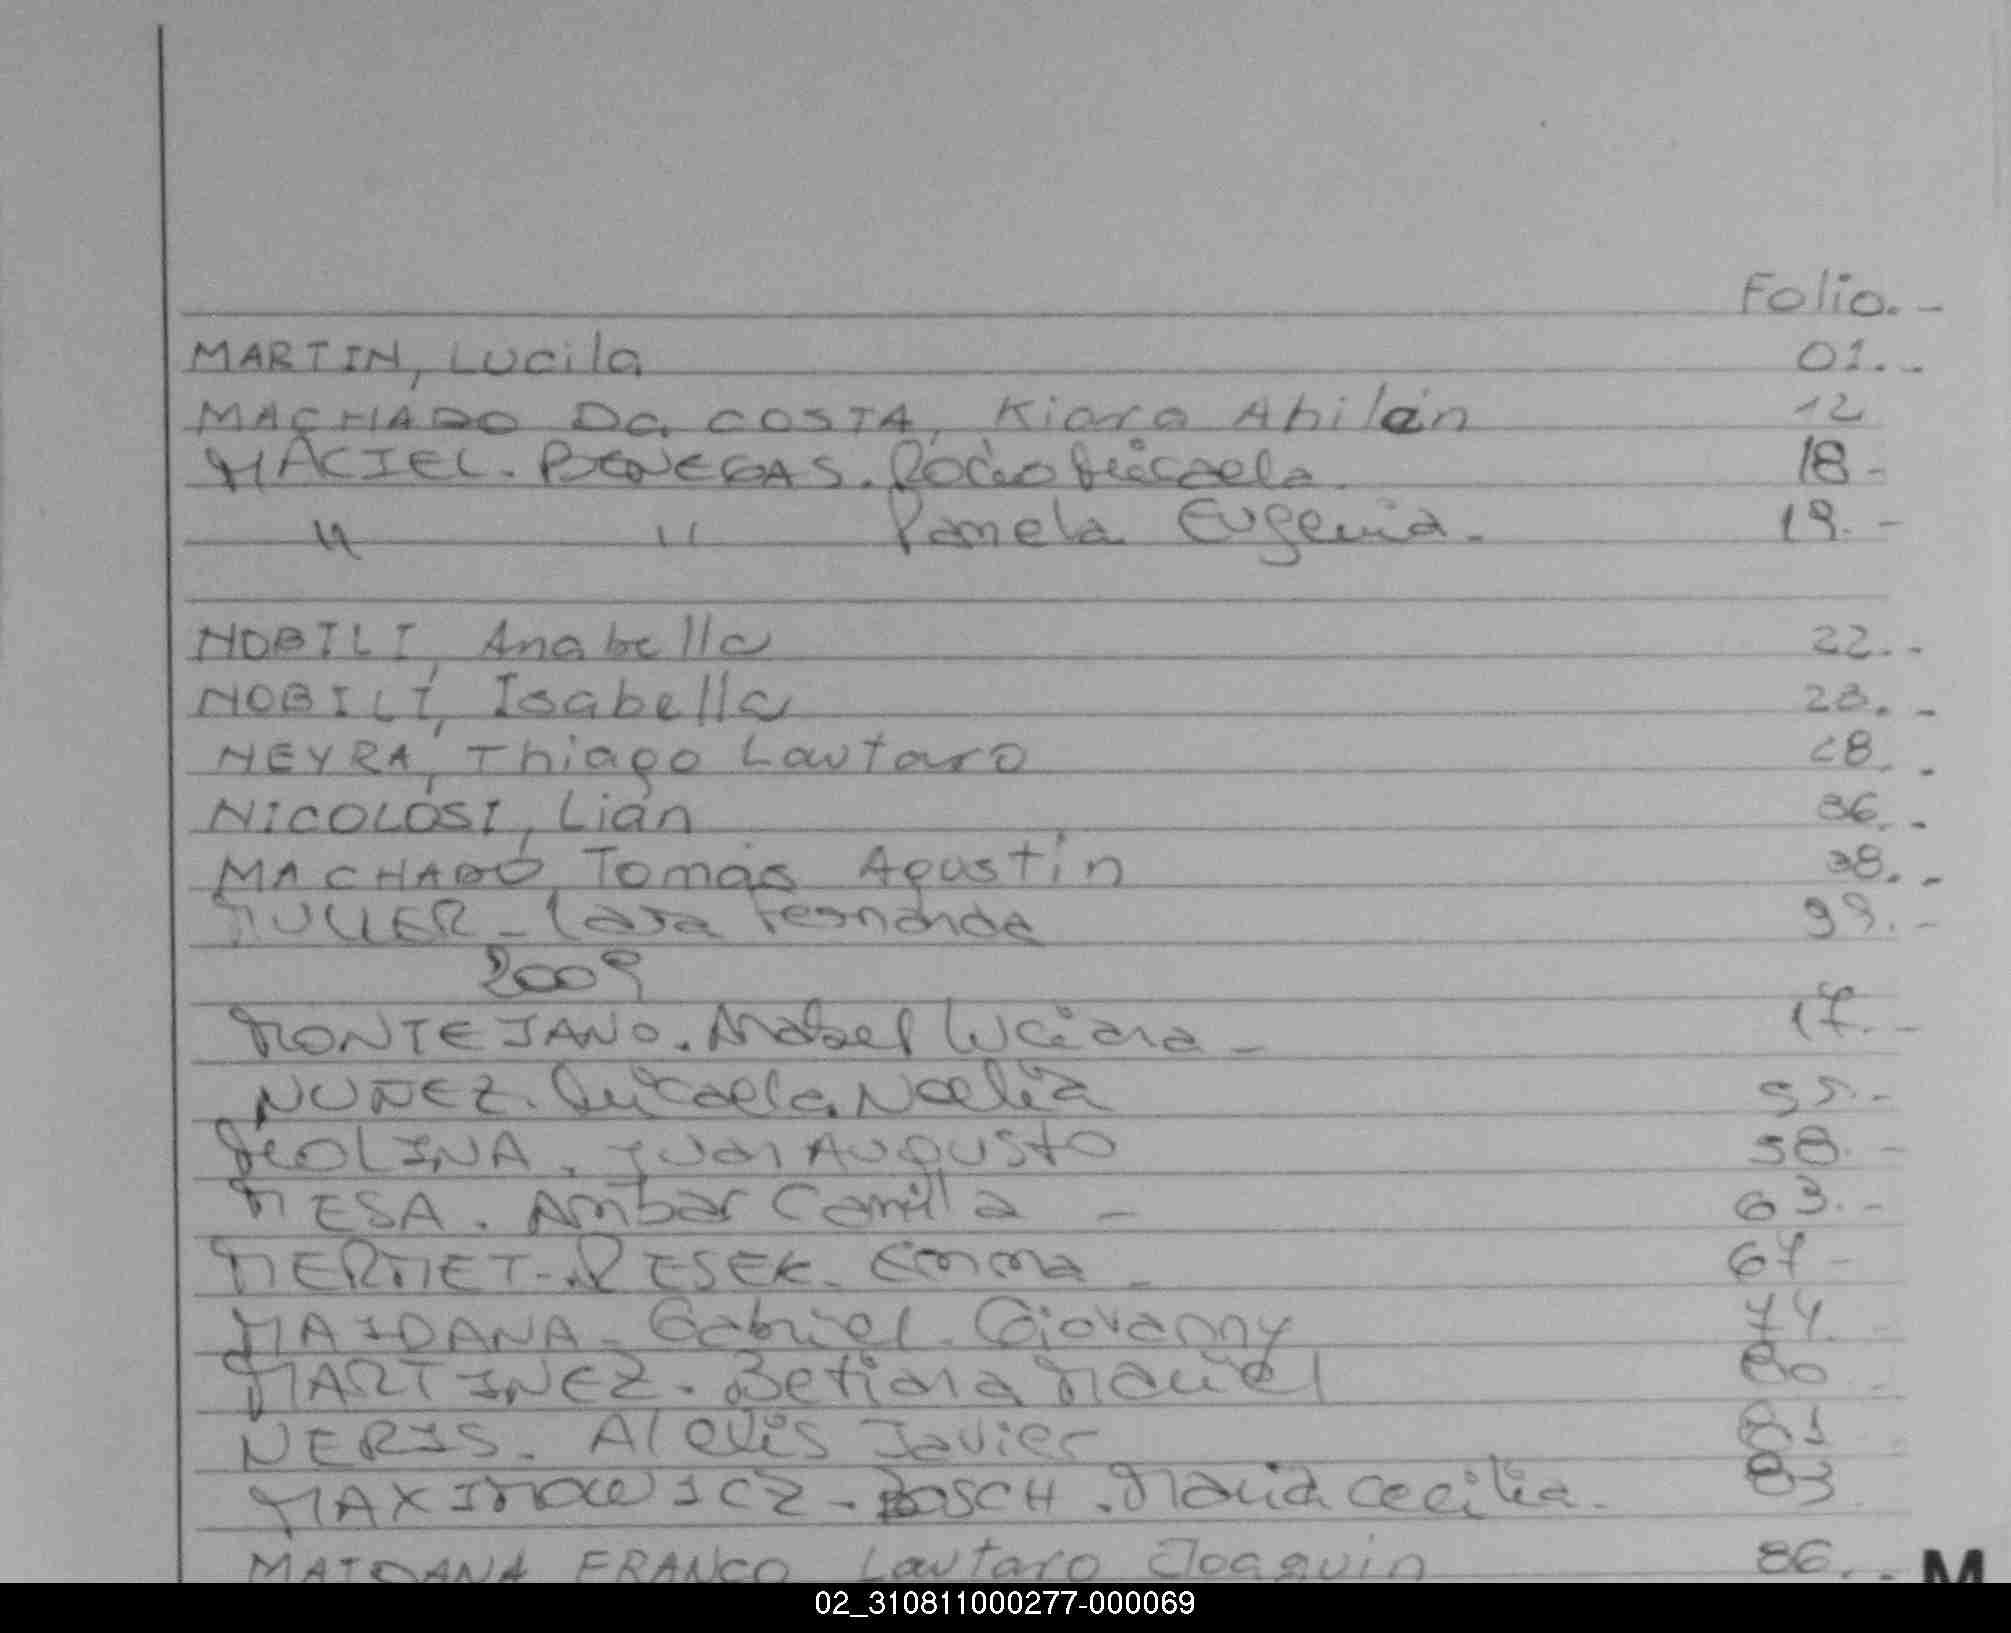 Folio.-
MARTIN, Lucila 01..-
MACHADO Da COSTA, Kiara Ahilén 12
MACIEL. BENEGAS. Rocío Micaela. 18-
" " Pamela Eugenia. 19.-
NOBILI, Anabella 22.-
NOBILI, Isabella 23.-
NEYRA, Thiago Lautaro 28.-
NICOLOSI, Lián 36.-
MACHADO, Tomás Agustín 38.-
MULLER - Lara Fernanda 39.-
2009
MONTEJANO. Mabel Luciana - 17.-
NUÑEZ. Micaela Noelia 55.-
MOLINA. Juan AUGUSTO 58.-
MESA. Ambar Camila - 63.-
MERMET-RESEK. Emma - 67-
MAIDANA - Gabriel. Giovanny 74.
MARTINEZ. Betiana Mariel 80
NERIS. Alexis Javier 81
MAXIMOWICZ - BOSCH. María Cecilia. 83
MAIDANA FRANCO Lautaro Joaquin 86..-
M
02_310811000277-000069